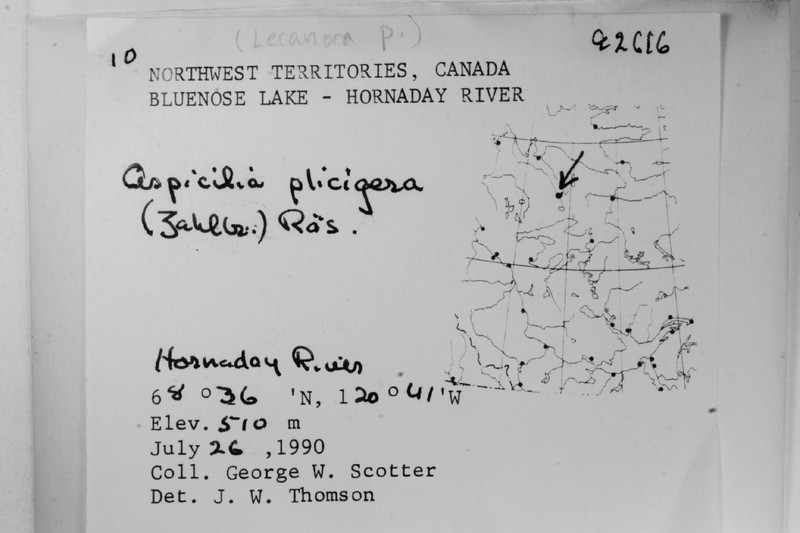 (Lecanora p.)
10
92616
NORTHWEST TERRITORIES, CANADA
BLUENOSE LAKE - HORNADAY RIVER
Aspicilia plicigera
(Zahlbr.) Räs.
Hornaday River
68°36'N, 120°41'W
Elev. 510 m
July 26, 1990
Coll. George W. Scotter
Det. J. W. Thomson